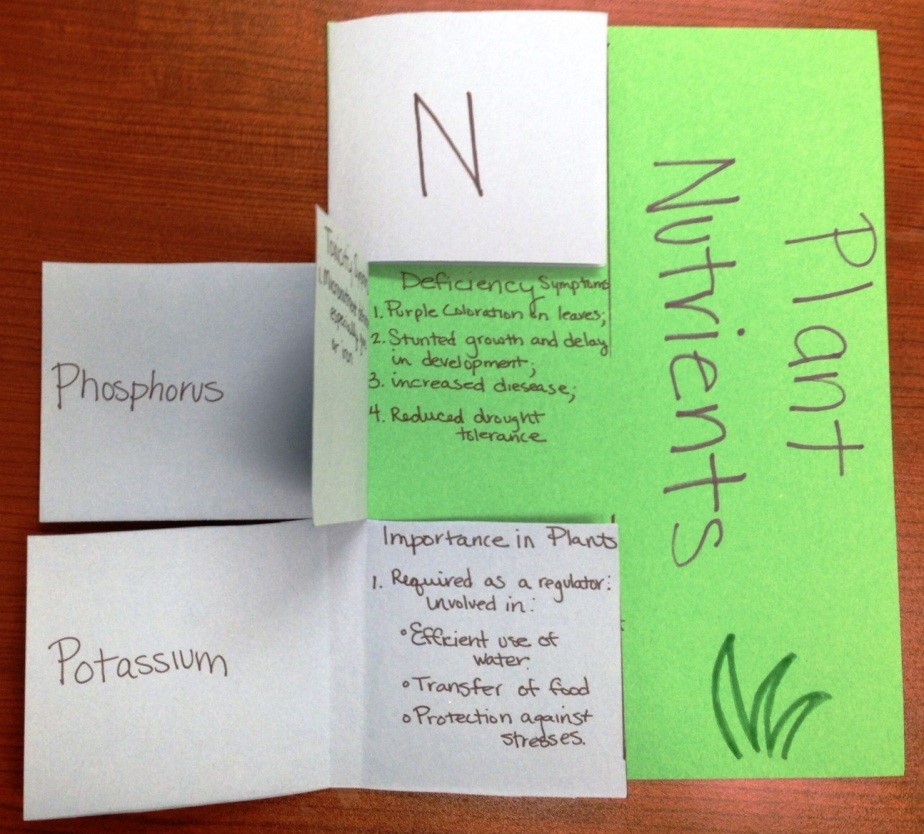 N
Plant
Nutrients
Toxicity
1. Micronutrient
especially
or iron
Phosphorus
Deficiency Symptoms
1. Purple Coloration in leaves;
2. Stunted growth and delay
in development;
3. increased diesease;
4. Reduced drought
tolerance
Potassium
Importance in Plants
1. Required as a regulator:
involved in:
• Efficient use of
water.
• Transfer of food
• Protection against
stresses.